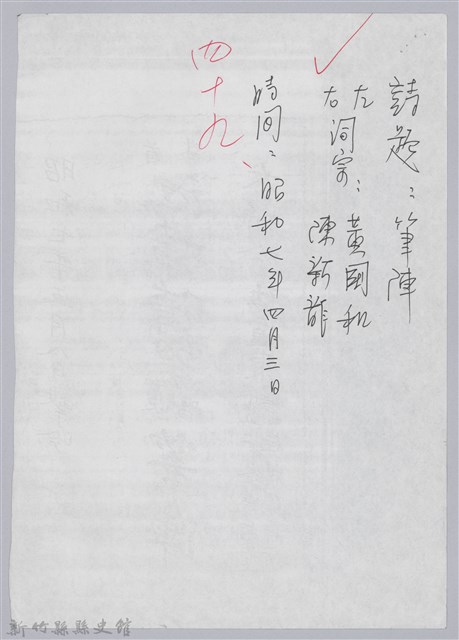 詩題：筆陣
左
右詞宗：黃國和
陳新龍
時間：昭和七年四月三日
四十九、
新竹縣縣史館